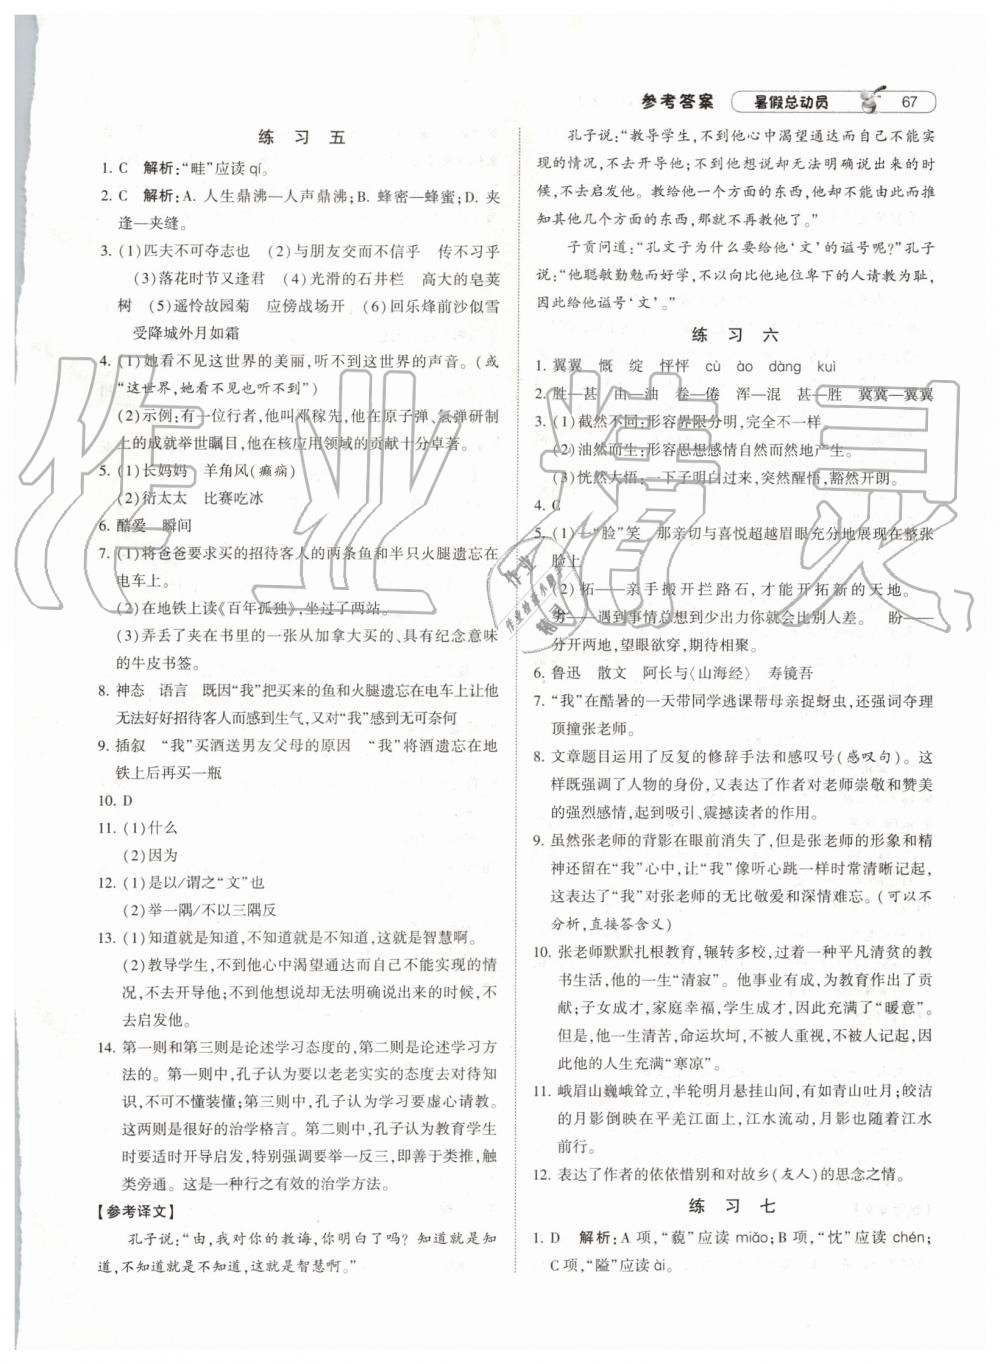 参考答案 暑假总动员 67
练 习 五
1. C 解析:“畦”应读 qí。
2. C 解析:A. 人生鼎沸—人声鼎沸;B. 蜂密—蜂蜜;D. 夹
逢—夹缝。
3. (1)匹夫不可夺志也 (2)与朋友交而不信乎 传不习乎
(3)落花时节又逢君 (4)光滑的石井栏 高大的皂荚
树 (5)遥怜故园菊 应傍战场开 (6)回乐烽前沙似雪
受降城外月如霜
4. (1)她看不见这世界的美丽,听不到这世界的声音。(或
“这世界,她看不见也听不到”)
(2)示例:有一位行者,他叫邓稼先,他在原子弹、氢弹研制
上的成就举世瞩目,他在核应用领域的贡献十分卓著。
5. (1)长妈妈 羊角风(癫痫)
(2)衍太太 比赛吃冰
6. 酷爱 瞬间
7. (1)将爸爸要求买的招待客人的两条鱼和半只火腿遗忘在
电车上。
(2)在地铁上读《百年孤独》,坐过了两站。
(3)弄丢了夹在书里的一张从加拿大买的、具有纪念意味
的牛皮书签。
8. 神态 语言 既因“我”把买来的鱼和火腿遗忘在电车上让他
无法好好招待客人而感到生气,又对“我”感到无可奈何
9. 插叙 “我”买酒送男友父母的原因 “我”将酒遗忘在地
铁上后再买一瓶
10. D
11. (1)什么
(2)因为
12. (1)是以/谓之“文”也
(2)举一隅/不以三隅反
13. (1)知道就是知道,不知道就是不知道,这就是智慧啊。
(2)教导学生,不到他心中渴望通达而自己不能实现的情况,
不去开导他;不到他想说却无法明确说出来的时候,不
去启发他。
14. 第一则和第三则是论述学习态度的,第二则是论述学习方
法的。第一则中,孔子认为要以老老实实的态度去对待知
识,不可不懂装懂;第三则中,孔子认为学习要虚心请教。
这两则是很好的治学格言。第二则中,孔子认为教育学生
时要适时开导启发,特别强调要举一反三,即善于类推,触
类旁通。这是一种行之有效的治学方法。
【参考译文】
孔子说:“由,我对你的教诲,你明白了吗?知道就是知
道,不知道就是不知道,这就是智慧啊。”
孔子说:“教导学生,不到他心中渴望通达而自己不能实
现的情况,不去开导他;不到他想说却无法明确说出来的时
候,不去启发他。教给他一个方面的东西,他却不能由此而推
知其他几个方面的东西,那就不再教他了。”
子贡问道:“孔文子为什么要给他‘文’的谥号呢?”孔子
说:“他聪敏勤勉而好学,不以向比他地位卑下的人请教为耻,
因此给他谥号‘文’。”
练 习 六
1. 翼翼 慨 绽 怦怦 cù ào dàng kuì
2. 胜—甚 由—油 卷—倦 浑—混 甚—胜 冀冀—翼翼
3. (1)截然不同:形容界限分明,完全不一样。
(2)油然而生:形容思想感情自然而然地产生。
(3)恍然大悟:一下子明白过来,突然醒悟,豁然开朗。
4. C
5. (1)一“脸”笑 那亲切与喜悦超越眼眶充分地展现在整张
脸上
(2)拓——亲手搬开拦路石,才能开拓新的天地。
——遇到事情总想到少出力你就会过得比别人差。 盼——
分开两地,望眼欲穿,期待相聚。
6. 鲁迅 散文 阿长与〈山海经〉 寿镜吾
7. “我”在酷暑的一天带同学逃课帮母亲捉蚜虫,还强词夺理
顶撞张老师。
8. 文章题目运用了反复的修辞手法和感叹号(感叹句)。这
样既强调了人物的身份,又表达了作者对老师崇敬和赞美
的强烈感情,起到吸引、震撼读者的作用。
9. 虽然张老师的背影在眼前消失了,但是张老师的形象和精
神还留在“我”心中,让“我”像听心跳一样时常清晰记起。
这表达了“我”对张老师的无比敬爱和深情难忘。(可以不
分析,直接答含义)
10. 张老师默默扎根教育,辗转多校,过着一种平凡清贫的教
书生活,他的一生“清寂”。他事业有成,为教育作出了贡
献;子女成才,家庭幸福,学生成才,因此充满了“暖意”。
但是,他一生清苦,命运坎坷,不被人重视,不被人记起,因
此他的人生充满“寒凉”。
11. 峨眉山巍峨耸立,半轮明月悬挂山间,有如青山吐月;皎洁
的月影倒映在平羌江面上,江水流动,月影也随着江水
前行。
12. 表达了作者的依依惜别和对故乡(友人)的思念之情。
练 习 七
1. D 解析:A 项,“藐”应读 miǎo;B 项,“忱”应读 chén;
C 项,“隘”应读 ài。
作业精灵